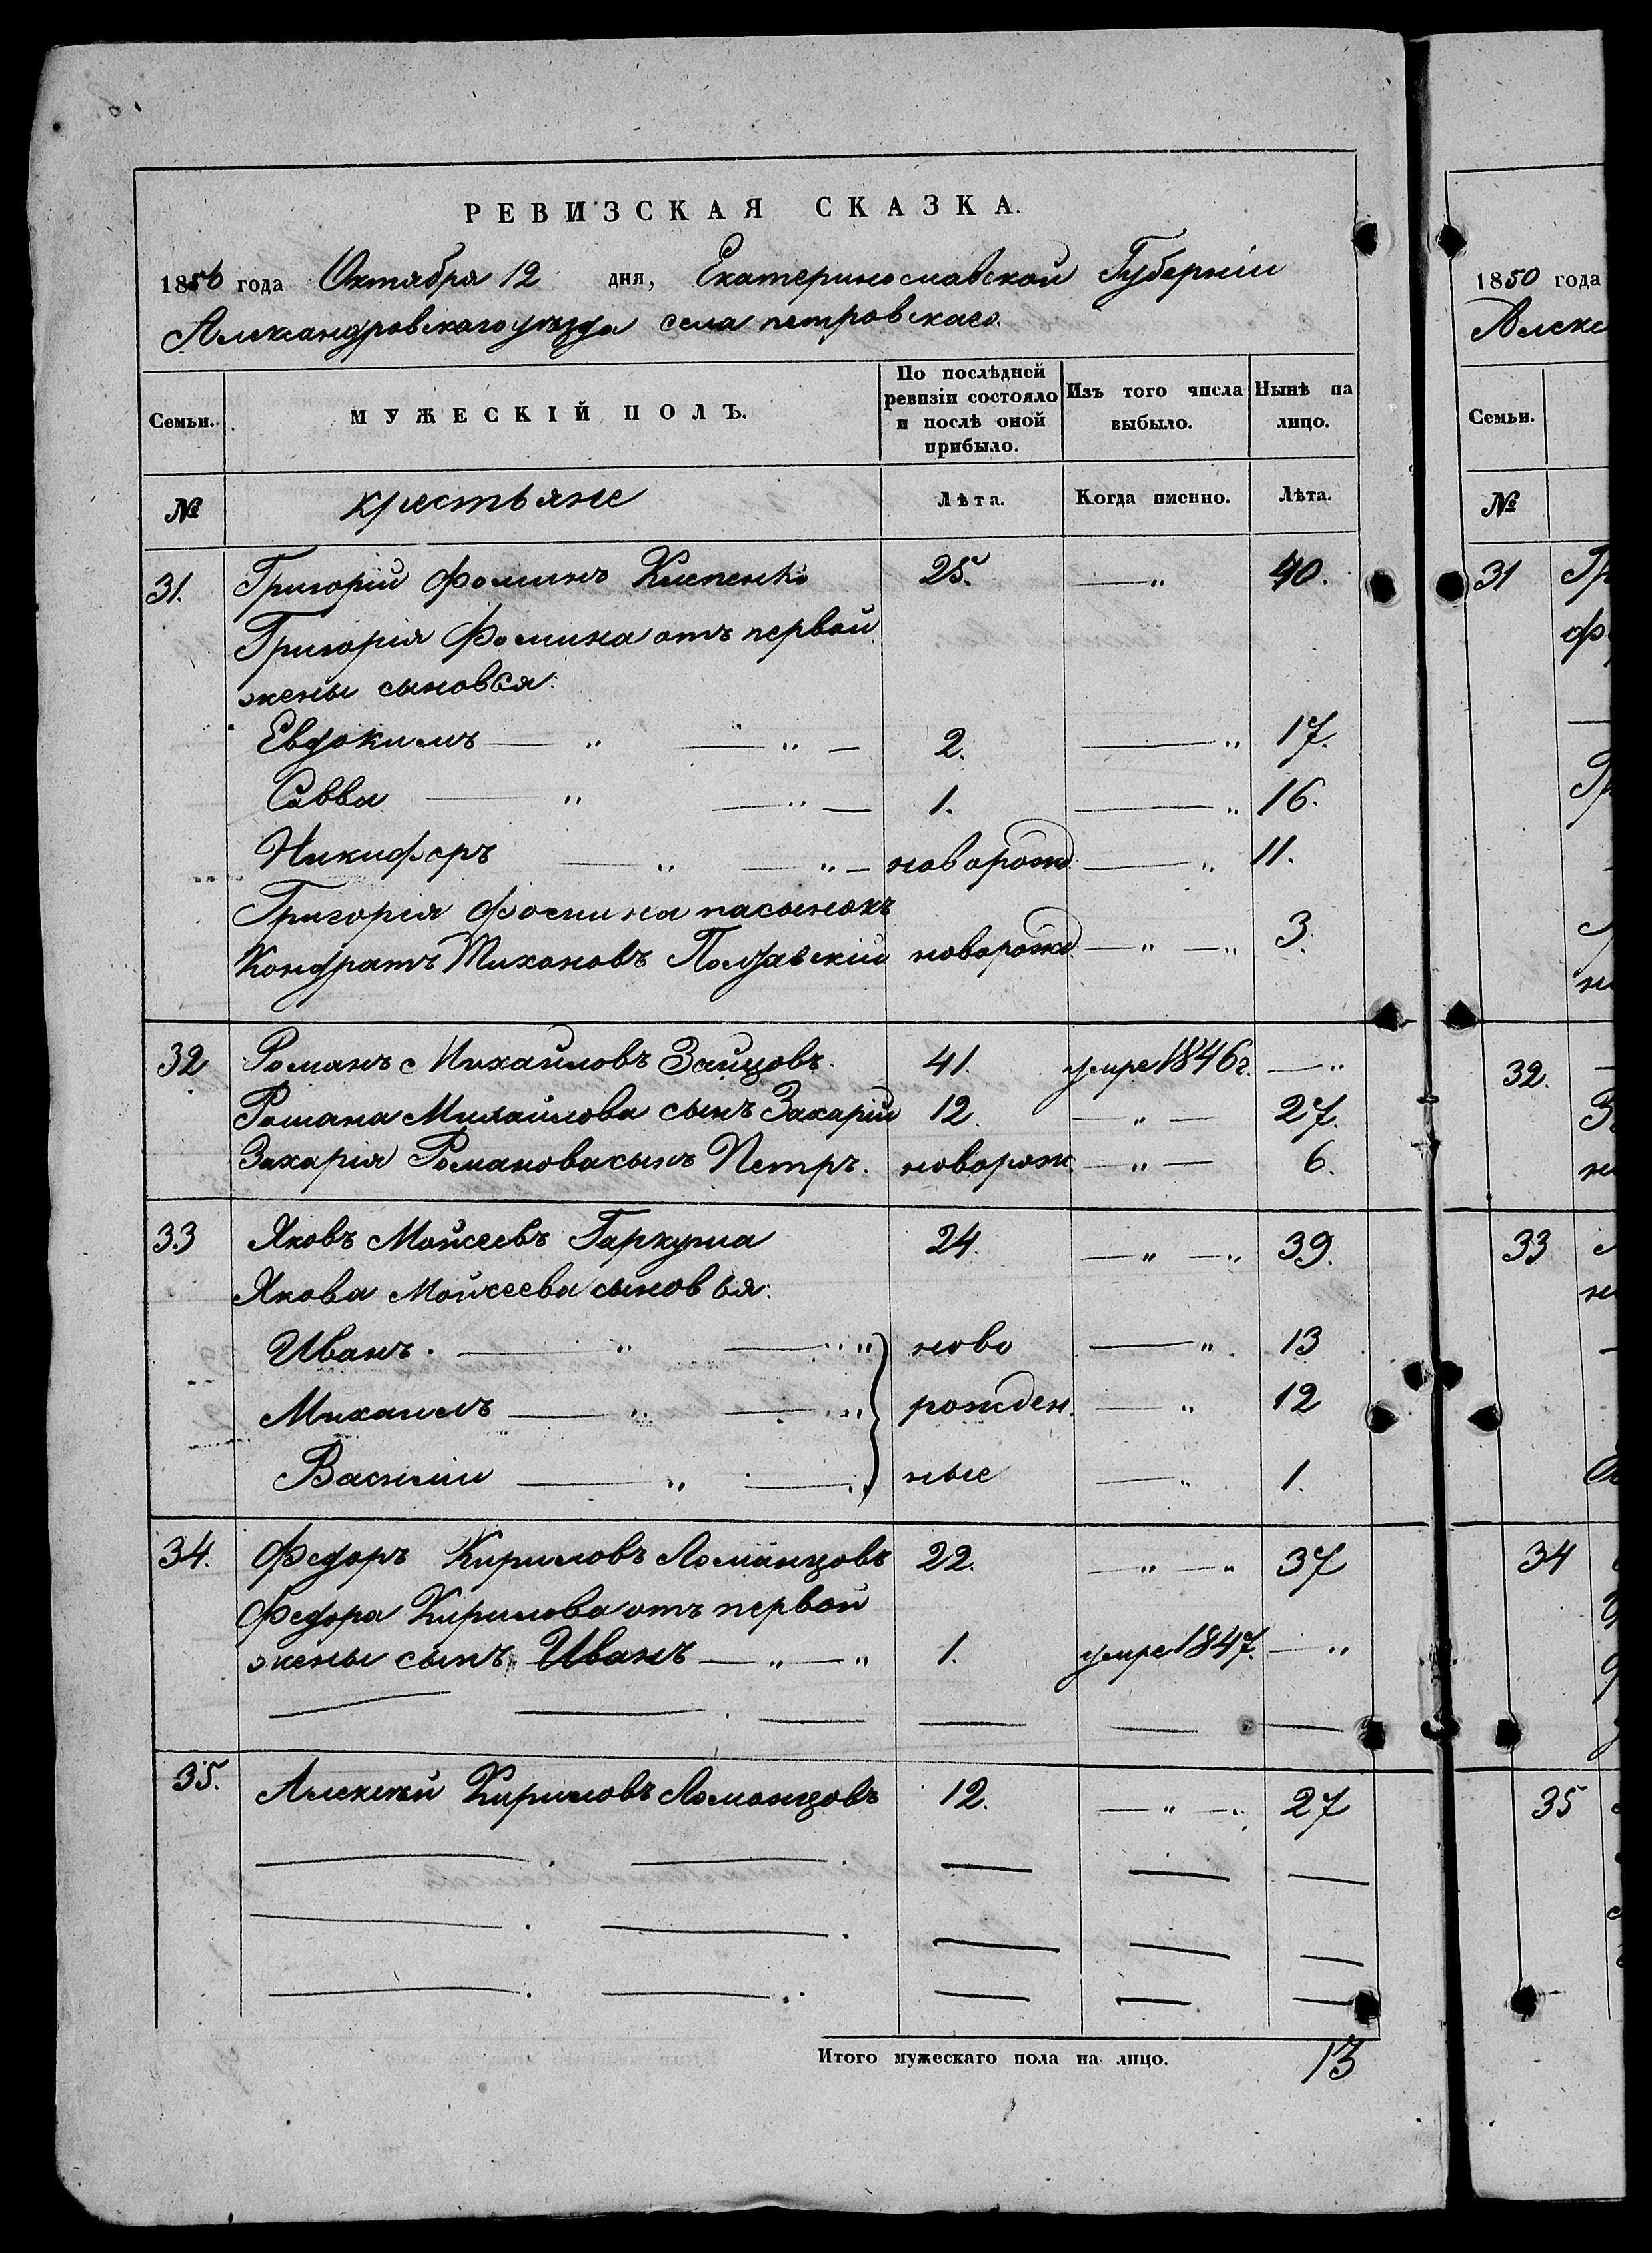 РЕВИЗСКАЯ СКАЗКА.
1850 года Октября 12 дня, Екатеринославской Губерніи
Александровскаго уѣзда села петровскаго.
Семьи. МУЖЕСКІЙ ПОЛЪ. По послѣдней ревизіи состояло и послѣ оной прибыло. Изъ того числа выбыло. Нынѣ на лицо.
№ крестьяне Лѣта. Когда именно. Лѣта.
31. Григорій Фоминъ 25. — " 40.
Григорія Фомина отъ первой
жены сыновья:
Евдокимъ — " — " — 2. — " 17.
Савва — " — " — 1. — " 16.
Никифоръ — " — " — новорожд. — " 11.
Григорія Фомина пасынокъ
Кондратъ Тихоновъ Полтавскій новорожд. — " — " 3.
32 Романъ Михайловъ Зайцовъ. 41. умре 1846 г. — "
Романа Михайлова сынъ Захарій 12. — " — 27.
Захарія Романова сынъ Петръ. новорож. — " — 6.
33 Яковъ Мойсеевъ Гаркуша 24. — " — " 39.
Якова Мойсеева сыновья:
Иванъ. — " — " ново — " 13
Михаилъ — " — " рожден. — " 12
Василій — " — " ные — " 1.
34. Федоръ Кириловъ Ломанцовъ 22. — " — " 37
Федора Кирилова отъ первой
жены сынъ Иванъ — " — " 1. умре 1847. — "
35. Алексѣй Кириловъ Ломанцовъ 12. — " — " 27
Итого мужескаго пола на лицо. 13
1850 года
Алекс
Семьи.
№
31 Гр
Ф
Гр
32. —
З
33
34
35